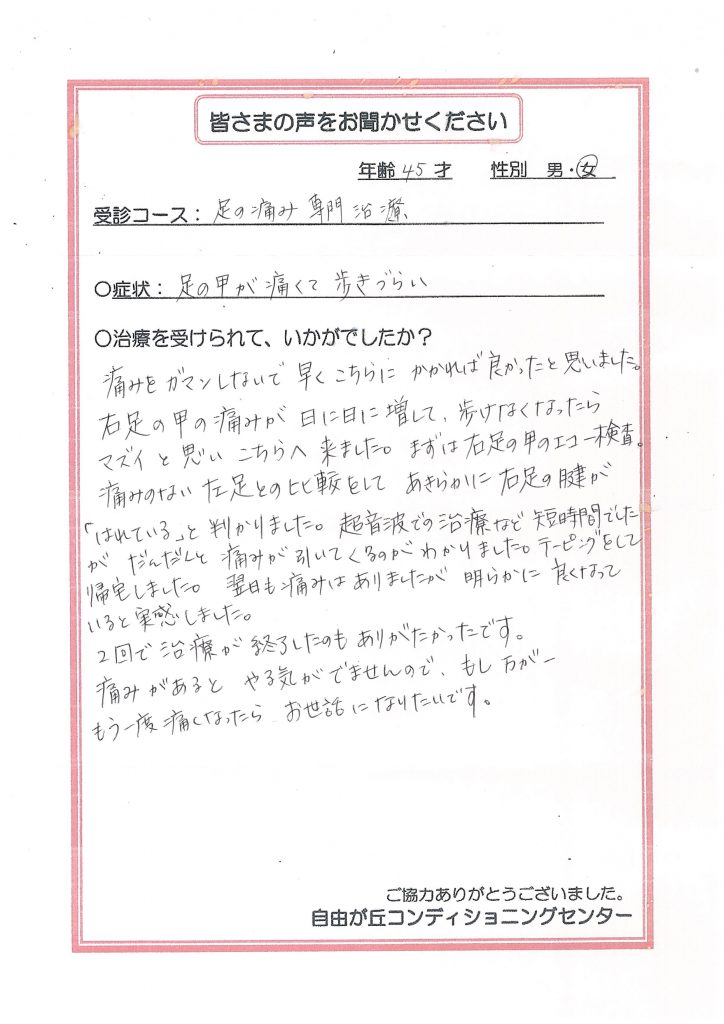 皆さまの声をお聞かせください
年齢 45 才 性別 男・女
受診コース： 足の痛み 専門治療
〇症状： 足の甲が痛くて 歩きづらい
〇治療を受けられて、いかがでしたか？
痛みを ガマンしないで 早く こちらに かかれば 良かったと 思いました。
右足の甲の痛みが 日に日に増して、歩けなくなったら
マズイ と 思い こちらへ 来ました。まずは右足の甲のエコー検査。
痛みのない 左足との比較をして あきらかに 右足の腱が
「はれている」と 判かりました。超音波での治療など 短時間でした
が だんだんと 痛みが引いてくるのが わかりました。テーピングをして
帰宅しました。 翌日も痛みは ありましたが 明らかに 良くなって
いると実感しました。
2回で 治療が 終了したのも ありがたかったです。
痛みがあると やる気がでませんので、もし万が一
もう一度 痛くなったら お世話になりたいです。
ご協力ありがとうございました。
自由が丘コンディショニングセンター